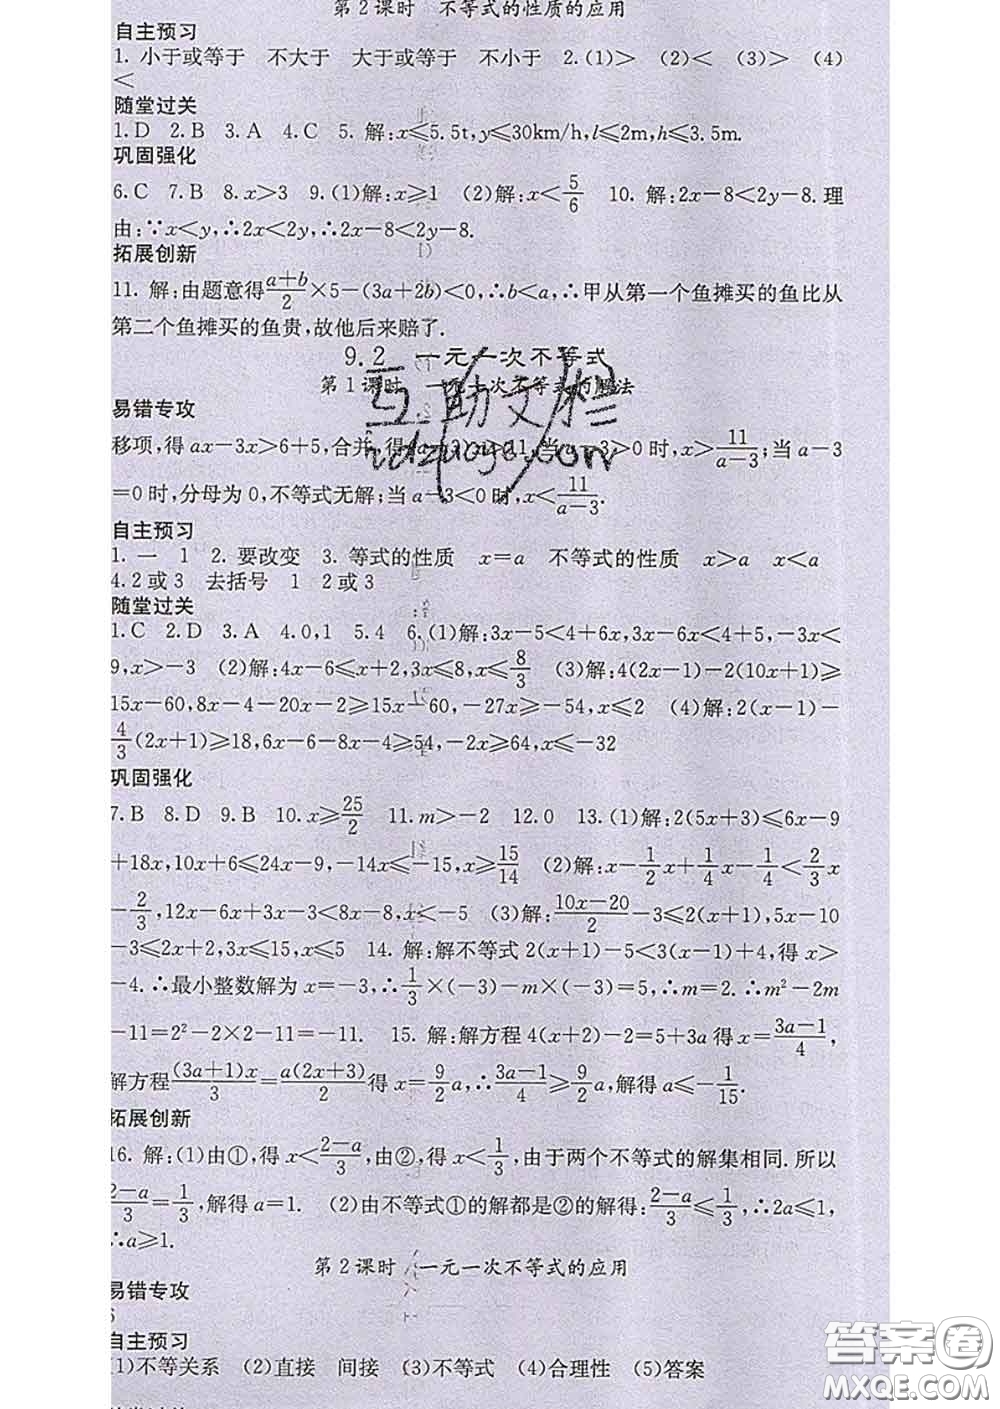 第2课时　不等式的性质的应用
自主预习
1. 小于或等于　不大于　大于或等于　不小于　2.(1)＞　(2)＜　(3)＞　(4)
＜
随堂过关
1.D　2.B　3.A　4.C　5. 解:x⩽5.5t,y⩽30km/h,l⩽2m,h⩽3.5m.
巩固强化
6.C　7.B　8.x＞3　9.(1)解:x⩾1　(2)解:x＜5/6　10. 解:2x−8＜2y−8.理
由:∵x＜y,∴2x＜2y,∴2x−8＜2y−8.
拓展创新
11. 解:由题意得(a+b)/2×5−(3a+2b)＜0,∴b＜a,∴甲从第一个鱼摊买的鱼比从
第二个鱼摊买的鱼贵,故他后来赔了.
9.2　一元一次不等式
第1课时　一元一次不等式的解法
易错专攻
移项,得 ax−3x＞6+5,合并,得 11,当 a−3＞0 时,x＞11/(a−3);当 a−3
=0 时,分母为 0,不等式无解;当 a−3＜0 时,x＜11/(a−3).
自主预习
1. 一　1　2. 要改变　3. 等式的性质　x=a　不等式的性质　x＞a　x＜a
4.2 或 3　去括号　1　2 或 3
随堂过关
1.C　2.D　3.A　4.0,1　5.4　6.(1)解:3x−5＜4+6x,3x−6x＜4+5,−3x＜
9,x＞−3　(2)解:4x−6⩽x+2,3x⩽8,x⩽8/3　(3)解:4(2x−1)−2(10x+1)⩾
15x−60,8x−4−20x−2⩾15x−60,−27x⩾−54,x⩽2　(4)解:2(x−1)−
4/3(2x+1)⩾18,6x−6−8x−4⩾54,−2x⩾64,x⩽−32
巩固强化
7.B　8.D　9.B　10.x⩾25/2　11.m＞−2　12.0　13.(1)解:2(5x+3)⩽6x−9
+18x,10x+6⩽24x−9,−14x⩽−15,x⩾15/14　(2)解:x−1/2x+1/4x−1/4＜2/3x
−2/3,12x−6x+3x−3＜8x−8,x＜−5　(3)解:(10x−20)/2−3⩽2(x+1),5x−10
−3⩽2x+2,3x⩽15,x⩽5　14. 解:解不等式 2(x+1)−5＜3(x−1)+4,得 x＞
−4.∴最小整数解为 x=−3,∴1/3×(−3)−m×(−3)=5,∴m=2.∴m²−2m
−11=2²−2×2−11=−11.　15. 解:解方程 4(x+2)−2=5+3a 得 x=(3a−1)/4,
解方程(3a+1)x/3=a(2x+3)/2得 x=9/2a,∴(3a−1)/4⩾9/2a,解得 a⩽−1/15.
拓展创新
16. 解:(1)由①,得 x＜(2−a)/3,由②,得 x＜1/3,由于两个不等式的解集相同.所以
(2−a)/3=1/3,解得 a=1.　(2)由不等式①的解都是②的解得:(2−a)/3⩽1/3,∴2a⩽1,
∴a⩾1.
第2课时　一元一次不等式的应用
易错专攻
6
自主预习
(1)不等关系　(2)直接　间接　(3)不等式　(4)合理性　(5)答案
互助文档
答案圈
MXQE.COM